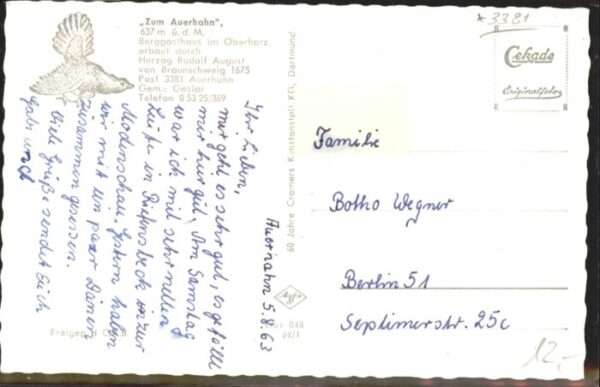 „Zum Auerhahn",
637 m ü. d. M.
Berggasthaus im Oberharz
erbaut durch
Herzog Rudolf August
von Braunschweig 1675
Post 3381 Auerhahn
Gem.: Goslar
Telefon 0 53 25/369
* 3381
Cekade
Originalfoto
60 Jahre Cramers Kunstanstalt KG, Dortmund
Auerhahn 5.8.63
Ihr Lieben,
mir geht es sehr gut, es gefällt
mir hier gut. Am Samstag
war ich mit sehr netten
Leute in zur
Modenschau. Gestern haben
wir mit ein paar Dänen
zusammen gesessen.
Viele Grüße sendet Euch
Familie
Botho Wegner
Berlin 51
Septimerstr. 25c
Freigeg.
12,-